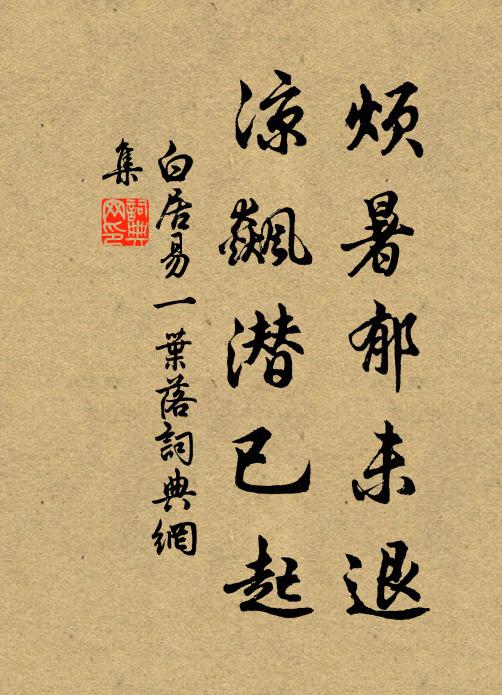 烦暑郁未退
凉飙潜已起
白居易一葉落詞典網
集
詞典
网印